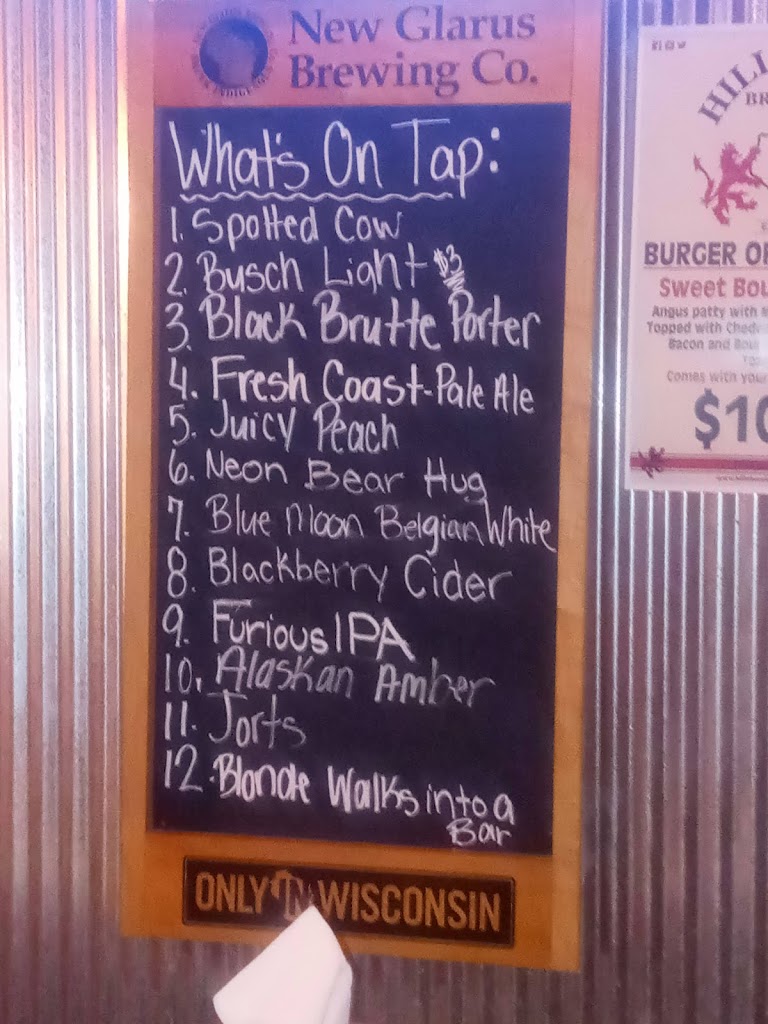 New Glarus
Brewing Co.
What's On Tap:
1. Spotted Cow
2. Busch Light $3
3. Black Brutte Porter
4. Fresh Coast-Pale Ale
5. Juicy Peach
6. Neon Bear Hug
7. Blue Moon Belgian White
8. Blackberry Cider
9. Furious IPA
10. Alaskan Amber
11. Jorts
12. Blonde Walks into a
Bar
ONLY IN WISCONSIN
HILL
BR
BURGER OF
Sweet Bou
Angus patty with
Topped with Chedd
Bacon and
Comes with your
$10